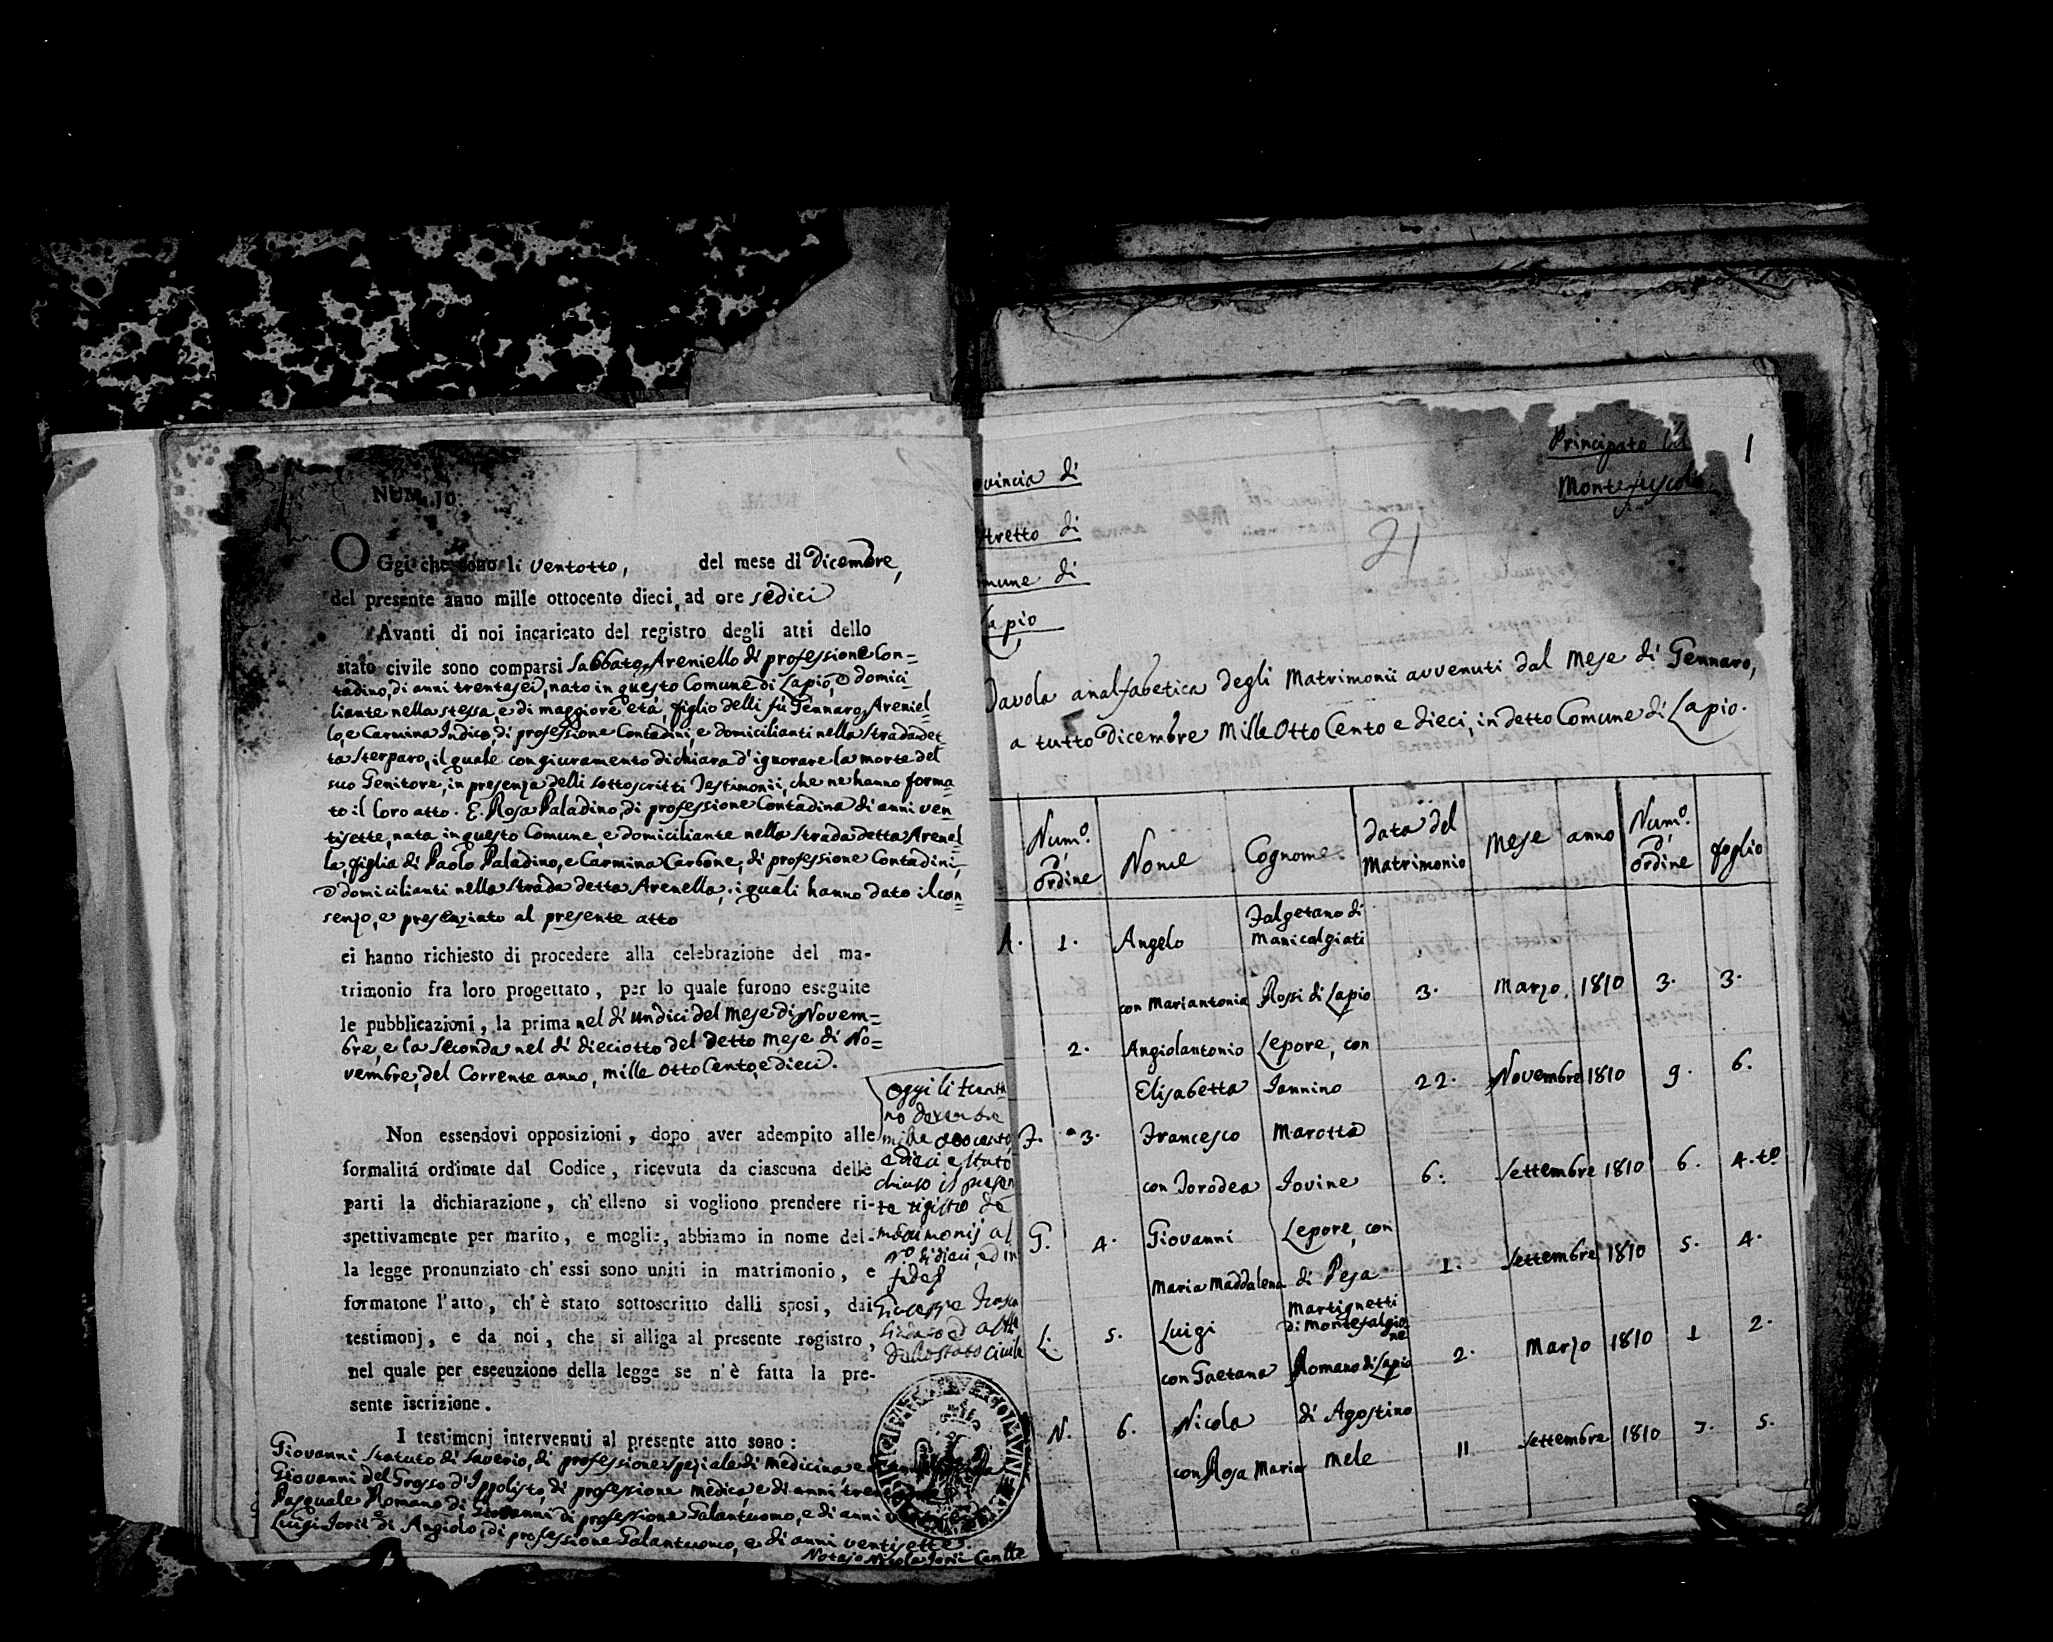 NUM. 10.
OGgi che sono li ventotto, del mese di Dicembre,
del presente anno mille ottocento dieci, ad ore sedici
Avanti di noi incaricato del registro degli atti dello
stato civile sono comparsi Sabbato Areniello di professione Con=
tadino, di anni trentasei, nato in questo Comune di Lapio, e domici=
liante nella stessa, e di maggiore età, figlio delli fù Gennaro Areniel=
lo, e Carmina Indico, di professione Contadini, e domicilianti nella Strada det=
ta Sterparo, il quale con giuramento dichiara d'ignorare la morte del
suo Genitore, in presenza delli sottoscritti Testimonii, che ne hanno forma=
to il loro atto. E. Rosa Paladino, di professione Contadina di anni ven=
tisette, nata in questo Comune, e domiciliante nella Strada detta Arenel=
la, figlia di Paolo Paladino, e Carmina Carbone, di professione Contadini,
e domicilianti nella Strada detta Arenella, i quali hanno dato il con=
senzo, e presenziato al presente atto
ci hanno richiesto di procedere alla celebrazione del ma-
trimonio fra loro progettato, per lo quale furono eseguite
le pubblicazioni, la prima nel dì undici del Mese di Novem=
bre, e la Seconda nel dì dieciotto del detto Mese di No=
vembre, del Corrente anno, mille otto Cento, e dieci.
Non essendovi opposizioni, dopo aver adempito alle
formalitá ordinate dal Codice, ricevuta da ciascuna delle
parti la dichiarazione, ch'elleno si vogliono prendere ri-
spettivamente per marito, e moglie, abbiamo in nome del-
la legge pronunziato ch'essi sono uniti in matrimonio, e
formatone l'atto, ch'è stato sottoscritto dalli sposi, dai
testimonj, e da noi, che si alliga al presente registro,
nel quale per esecuzione della legge se n'è fatta la pre-
sente iscrizione.
I testimonj intervenuti al presente atto sono:
Giovanni Statuto di Saverio, di professione Speziale di medicina e
Giovanni del Grosso d'Ippolisto, di professione medico, e di anni
Pasquale Romano di Giovanni di professione Galantuomo, e di anni
Luigi Iorii di Angiolo, di professione Galantuomo, e di anni ventisette.
Notajo Nicola Iorii
Oggi li
no decembre
mille ottocento,
e dieci è stato
chiuso il presen
te registro de
matrimonij al
n.o di dieci, ed in
fede
Giuseppe
Sindaco ed
dello stato civile
1
Principato
Montefuscolo
vincia di
tretto di
mune di
Lapio
21
Tavola analfabetica degli Matrimonii avvenuti dal Mese di Gennaro,
a tutto Dicembre Mille Otto Cento e dieci, in detto Comune di Lapio.
Num.o d'ordine Nome Cognome Data del Matrimonio Mese anno Num.o d'ordine foglio
A. 1. Angelo Falgetano di Manicalgiati
con Mariantonia Rossi di Lapio 3. Marzo 1810 3. 3.
2. Angiolantonio Lepore, con
Elisabetta Iannino 22. Novembre 1810 9. 6.
F. 3. Francesco Marotta
con Dorodea Iovine 6. Settembre 1810 6. 4.to
G. 4. Giovanni Lepore, con
Maria Maddalena di Pesa 1. Settembre 1810 5. 4.
L. 5. Luigi Martignetti di Montefalgione
con Gaetana Romano di Lapio 2. Marzo 1810 1 2.
N. 6. Nicola di Agostino
con Rosa Maria Mele 11 Settembre 1810 7. 5.